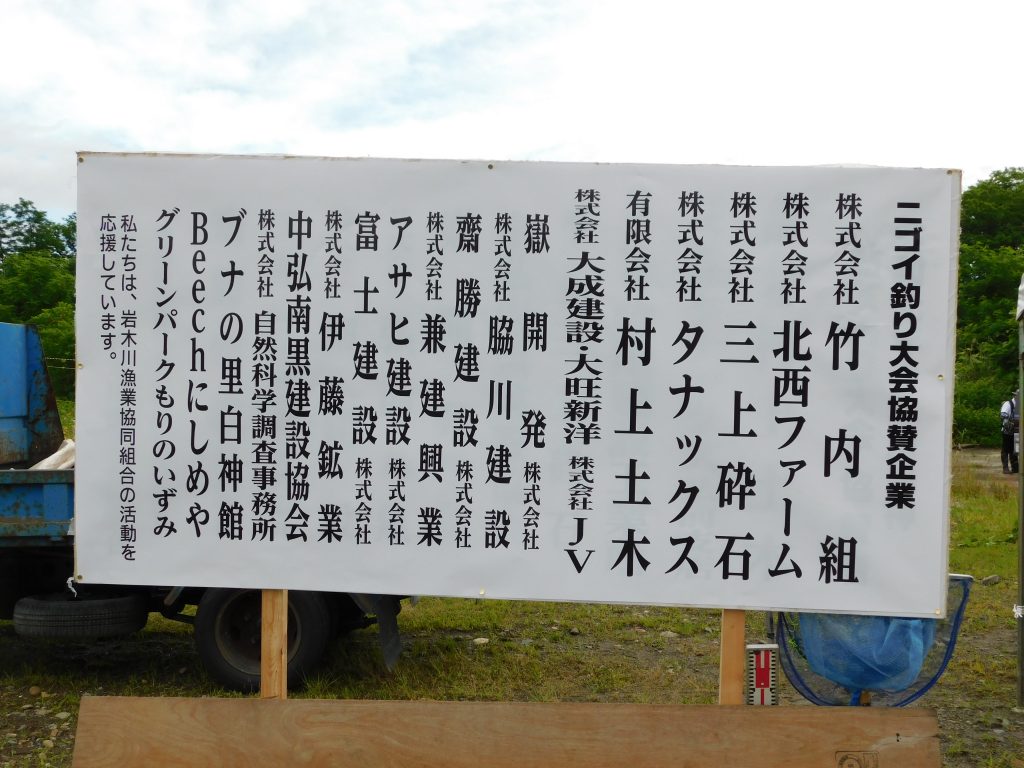 ニゴイ釣り大会協賛企業
株式会社 竹内組
株式会社 北西ファーム
株式会社 三上砕石
株式会社 タナックス
有限会社 村上土木
株式会社 大成建設・大旺新洋 株式会社 JV
嶽開発 株式会社
株式会社 脇川建設
齋勝建設 株式会社
株式会社 兼建興業
アサヒ建設 株式会社
富士建設 株式会社
株式会社 伊藤鉱業
中弘南黒建設協会
株式会社 自然科学調査事務所
ブナの里白神館
Beechにしめや
グリーンパークもりのいずみ
私たちは、岩木川漁業協同組合の活動を
応援しています。